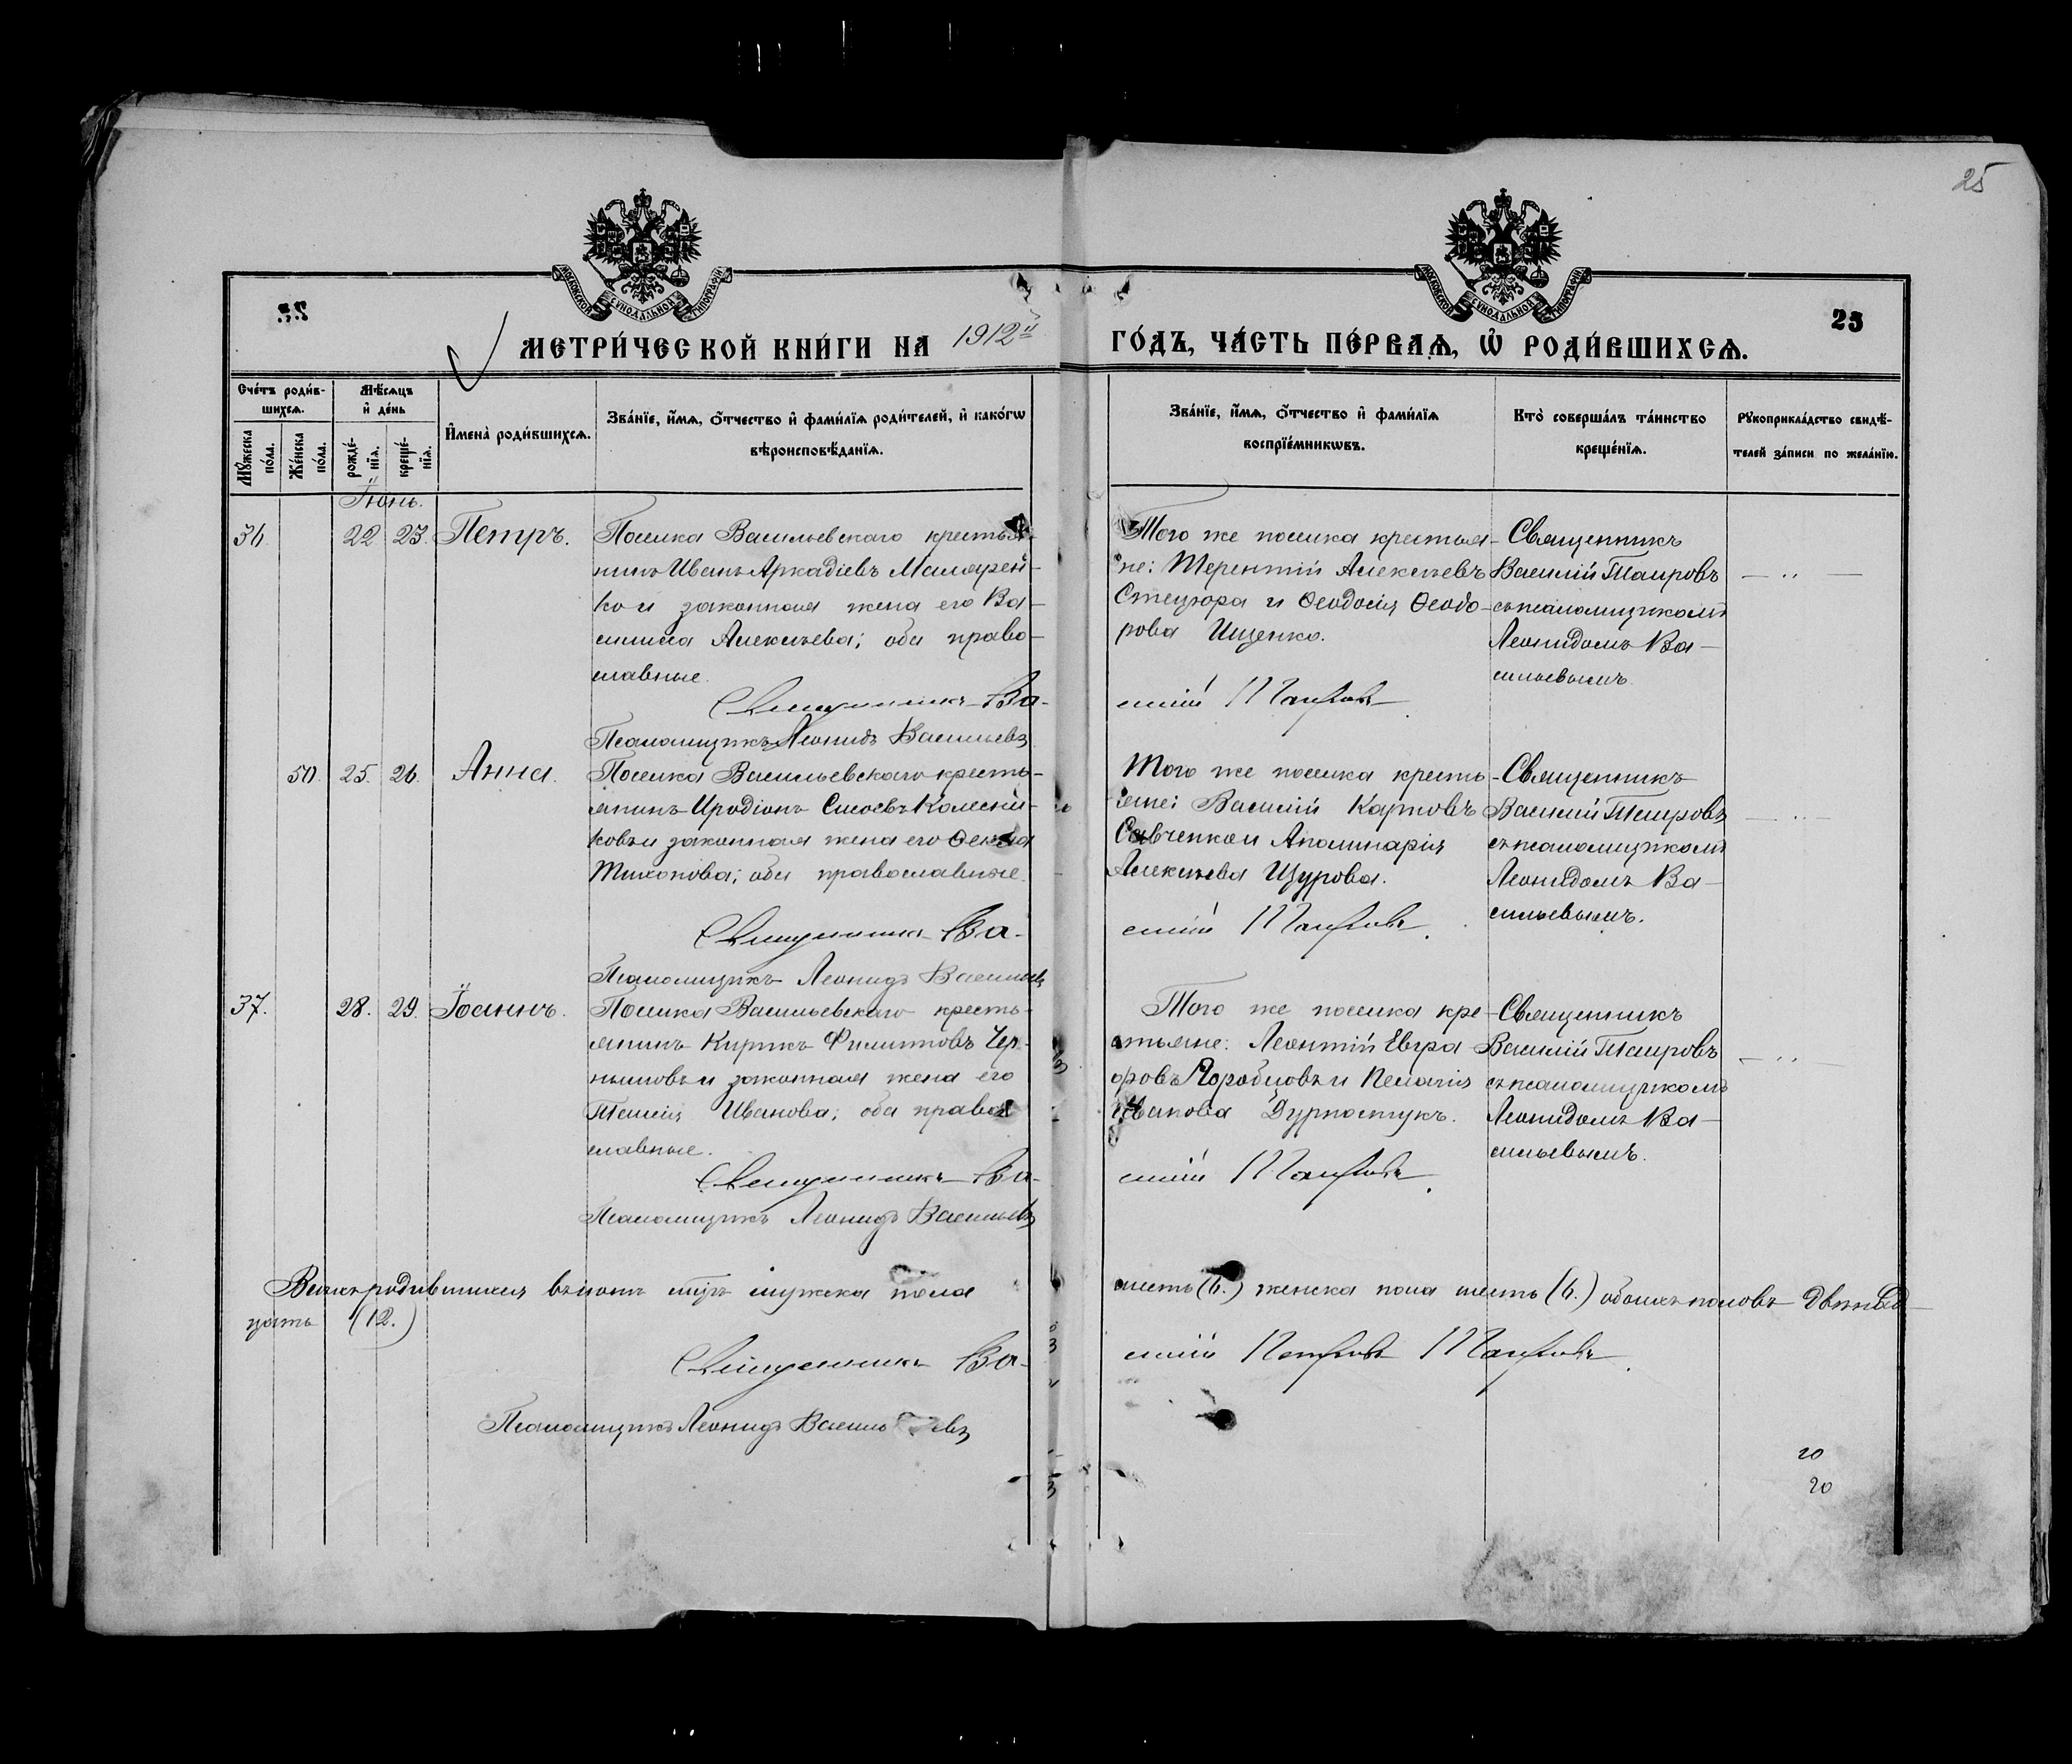 25
МОСКОВСКОЙ СѴНОДАЛЬНОЙ ТИПОГРАФІИ
МОСКОВСКОЙ СѴНОДАЛЬНОЙ ТИПОГРАФІИ
25
МЕТРИ́ЧЕСКОЙ КНИ́ГИ НА 1912й
ГО́ДЪ, ЧА́СТЬ ПЕ́РВАѦ, Ѡ҆ РОДИ́ВШИХСѦ.
Сче́тъ роди́в-
шихсѧ.
Мѣ́сѧцъ
и҆ де́нь
Мꙋ́жеска
по́ла.
Же́нска
по́ла.
рожде́-
нїѧ.
креще́-
нїѧ.
И҆мена̀ роди́вшихсѧ.
Зва́нїе, и҆́мѧ, ѻ҆́тчество и҆ фами́лїѧ роди́телей, и҆ како́гѡ
вѣроисповѣ́данїѧ.
Зва́нїе, и҆́мѧ, ѻ҆́тчество и҆ фами́лїѧ
воспрїе́мникѡвъ.
Кто̀ соверша́лъ та́инство
креще́нїѧ.
Рꙋкоприкла́дство свидѣ́-
телей за́писи по жела́нїю.
Іюнь.
36. 22 23. Петръ.
Поселка Васильевскаго крестья-
нинъ Иванъ Аркадіевъ
ко и законная жена его Ва-
силиса Алексѣева; оба право-
славные.
Священникъ Ва-
Псаломщикъ Леонидъ Васильевъ
Того же поселка крестья-
не: Терентій Алексѣевъ
Стецюра и Ѳеодосія Ѳеодо-
рова Ищенко.
силій Таировъ
Священникъ
Василій Таировъ
съ псаломщикомъ
Леонидомъ Ва-
сильевымъ.
50. 25. 26. Анна.
Поселка Васильевскаго кресть-
янинъ Иродіонъ Сысоевъ Колесни-
ковъ и законная жена его
Тихонова; оба православные.
Священникъ Ва-
Псаломщикъ Леонидъ Васильевъ
Того же поселка кресть-
яне: Василій Карповъ
Савченко и Аполинарія
Алексѣева Щурова.
силій Таировъ
Священникъ
Василій Таировъ
съ псаломщикомъ
Леонидомъ Ва-
сильевымъ.
37. 28. 29. Іоаннъ.
Поселка Васильевскаго кресть-
янинъ Кирикъ Филипповъ Чер-
нышовъ и законная жена его
Таисія Иванова; оба право-
славные.
Священникъ Ва-
Псаломщикъ Леонидъ Васильевъ
Того же поселка кре-
стьяне: Леонтій Евгра-
фовъ и Пелагія
Иванова Дурностукъ.
силій Таировъ
Священникъ
Василій Таировъ
съ псаломщикомъ
Леонидомъ Ва-
сильевымъ.
Всѣхъ родившихся въ іюнѣ м-цѣ мужска пола
шесть (6.) женска пола шесть (6.) обоихъ половъ двѣнад-
цать (12.)
Священникъ Ва-
силій Петровъ Таировъ
Псаломщикъ Леонидъ Васильевъ
20
20